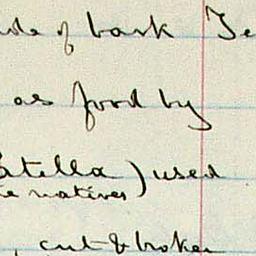 of bark
as food by
atella) used
e natives)
cut & broken